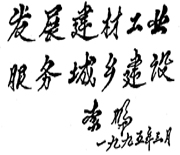 发展建材工业
服务城乡建设
李鹏
一九九五年三月